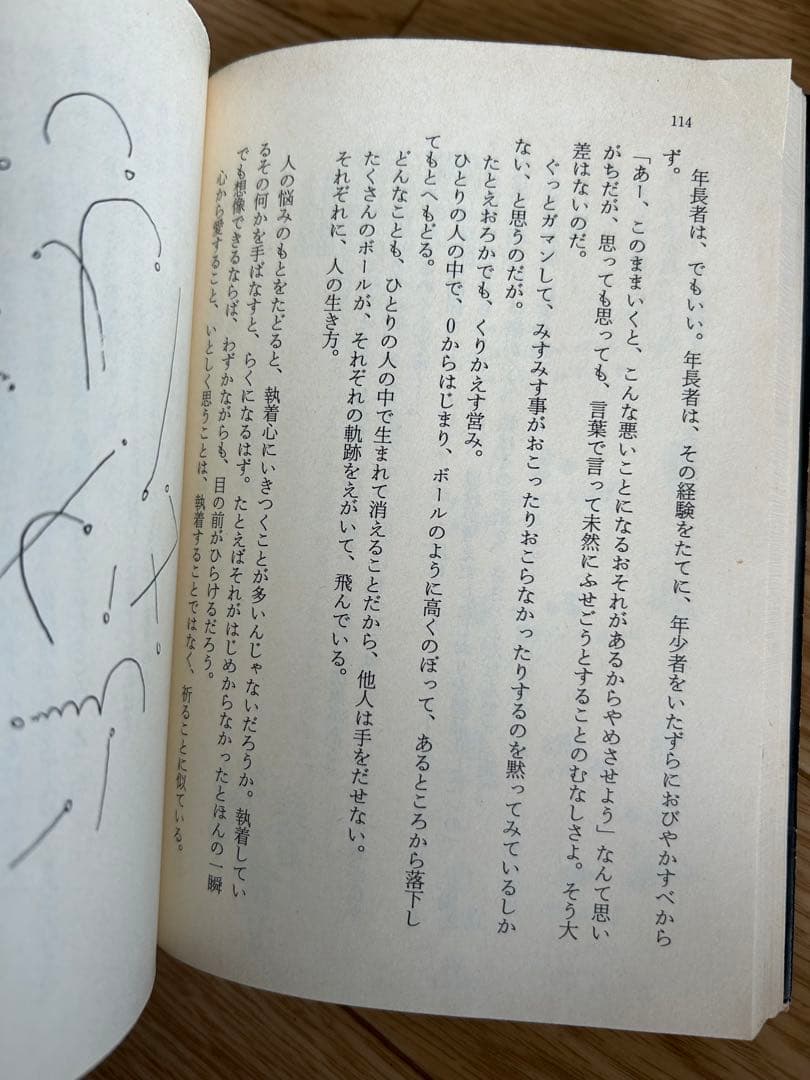 114
年長者は、でもいい。年長者は、その経験をたてに、年少者をいたずらにおびやかすべから
ず。
「あー、このままいくと、こんな悪いことになるおそれがあるからやめさせよう」なんて思い
がちだが、思っても思っても、言葉で言って未然にふせごうとすることのむなしさよ。そう大
差はないのだ。
ぐっとガマンして、みすみす事がおこったりおこらなかったりするのを黙ってみているしか
ない、と思うのだが。
たとえおろかでも、くりかえす営み。
ひとりの人の中で、0からはじまり、ボールのように高くのぼって、あるところから落下し
てもとへもどる。
どんなことも、ひとりの人の中で生まれて消えることだから、他人は手をだせない。
たくさんのボールが、それぞれの軌跡をえがいて、飛んでいる。
それぞれに、人の生き方。
人の悩みのもとをたどると、執着心にいきつくことが多いんじゃないだろうか。執着してい
るその何かを手ばなすと、らくになるはず。たとえばそれがはじめからなかったとほんの一瞬
でも想像できるならば、わずかながらも、目の前がひらけるだろう。
心から愛すること、いとしく思うことは、執着することではなく、祈ることに似ている。